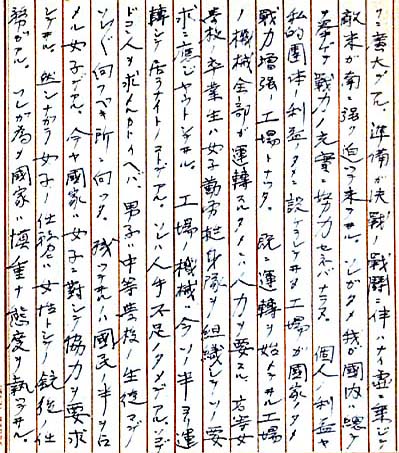 ニ重大デアル。準備ガ決戦ノ戦闘ニ伴ハナイ虚ニ乗ジテ
敵米ガ南ニ強ク迫ッテ来テヰル。ソレガタメ我ガ國内ハ總テ
ヲ挙ゲテ戦力ノ充實ニ努力セネバナラヌ。個人ノ利益ヤ
私的團体ノ利益ノタメニ設ケラレテヰタ工場ガ國家ノタメ
戦力増強ノ工場トナッタ。既ニ運轉ヲ始メテヰル工場
ノ機械全部ガ運轉スルタメニハ人力ヲ要スル。高等女
學校ノ卒業生ハ女子勤労挺身隊ヲ組織シテソノ要
求ニ應ジヤウトシテヰル。工場ノ機械ハ今ソノ半ヨリ運
轉シテ居ラナイトノコトデアル。ソレハ人手不足ノタメデアル。ソレデ
ドコニ人ヲ求メルカトイヘバ、男子ハ中等學校ノ生徒マデ
ソレゾレ向フベキ所ニ向ッタ。残ッテヰルハ國民ノ半ヲ占
メル女子デアル。今ヤ國家ハ女子ニ對シテ協力ヲ要求
シテヰル。然シナガラ女子ノ仕務ニハ女性トシテノ銃後ノ仕
務ガアル。ソレガ為メ國家ハ慎重ナ態度ヲ執ッテヰル。